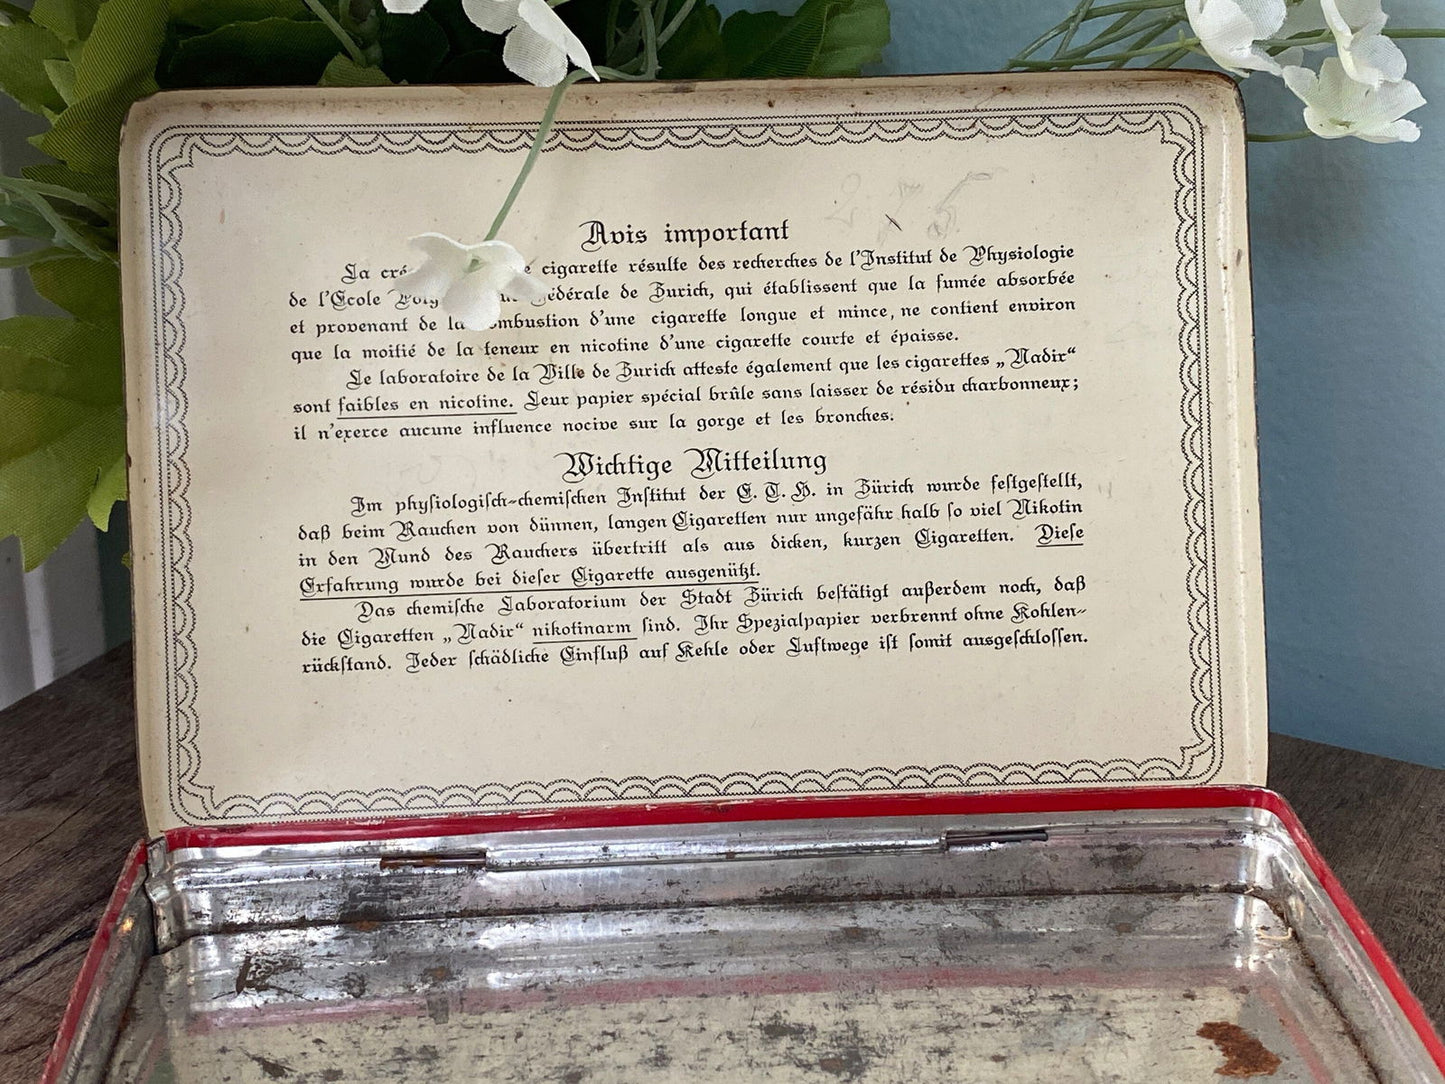 Avis important
La cigarette résulte des recherches de l'Institut de Physiologie
de l'Ecole fédérale de Zurich, qui établissent que la fumée absorbée
et provenant de la combustion d'une cigarette longue et mince, ne contient environ
que la moitié de la teneur en nicotine d'une cigarette courte et épaisse.
Le laboratoire de la Ville de Zurich atteste également que les cigarettes „Nadir“
sont faibles en nicotine. Leur papier spécial brûle sans laisser de résidu charbonneux;
il n'exerce aucune influence nocive sur la gorge et les bronches.
Wichtige Mitteilung
Im physiologisch-chemischen Institut der E. T. H. in Zürich wurde festgestellt,
daß beim Rauchen von dünnen, langen Cigaretten nur ungefähr halb so viel Nikotin
in den Mund des Rauchers übertritt als aus dicken, kurzen Cigaretten. Diese
Erfahrung wurde bei dieser Cigarette ausgenützt.
Das chemische Laboratorium der Stadt Zürich bestätigt außerdem noch, daß
die Cigaretten „Nadir“ nikotinarm sind. Ihr Spezialpapier verbrennt ohne Kohlen-
rückstand. Jeder schädliche Einfluß auf Kehle oder Luftwege ist somit ausgeschlossen.